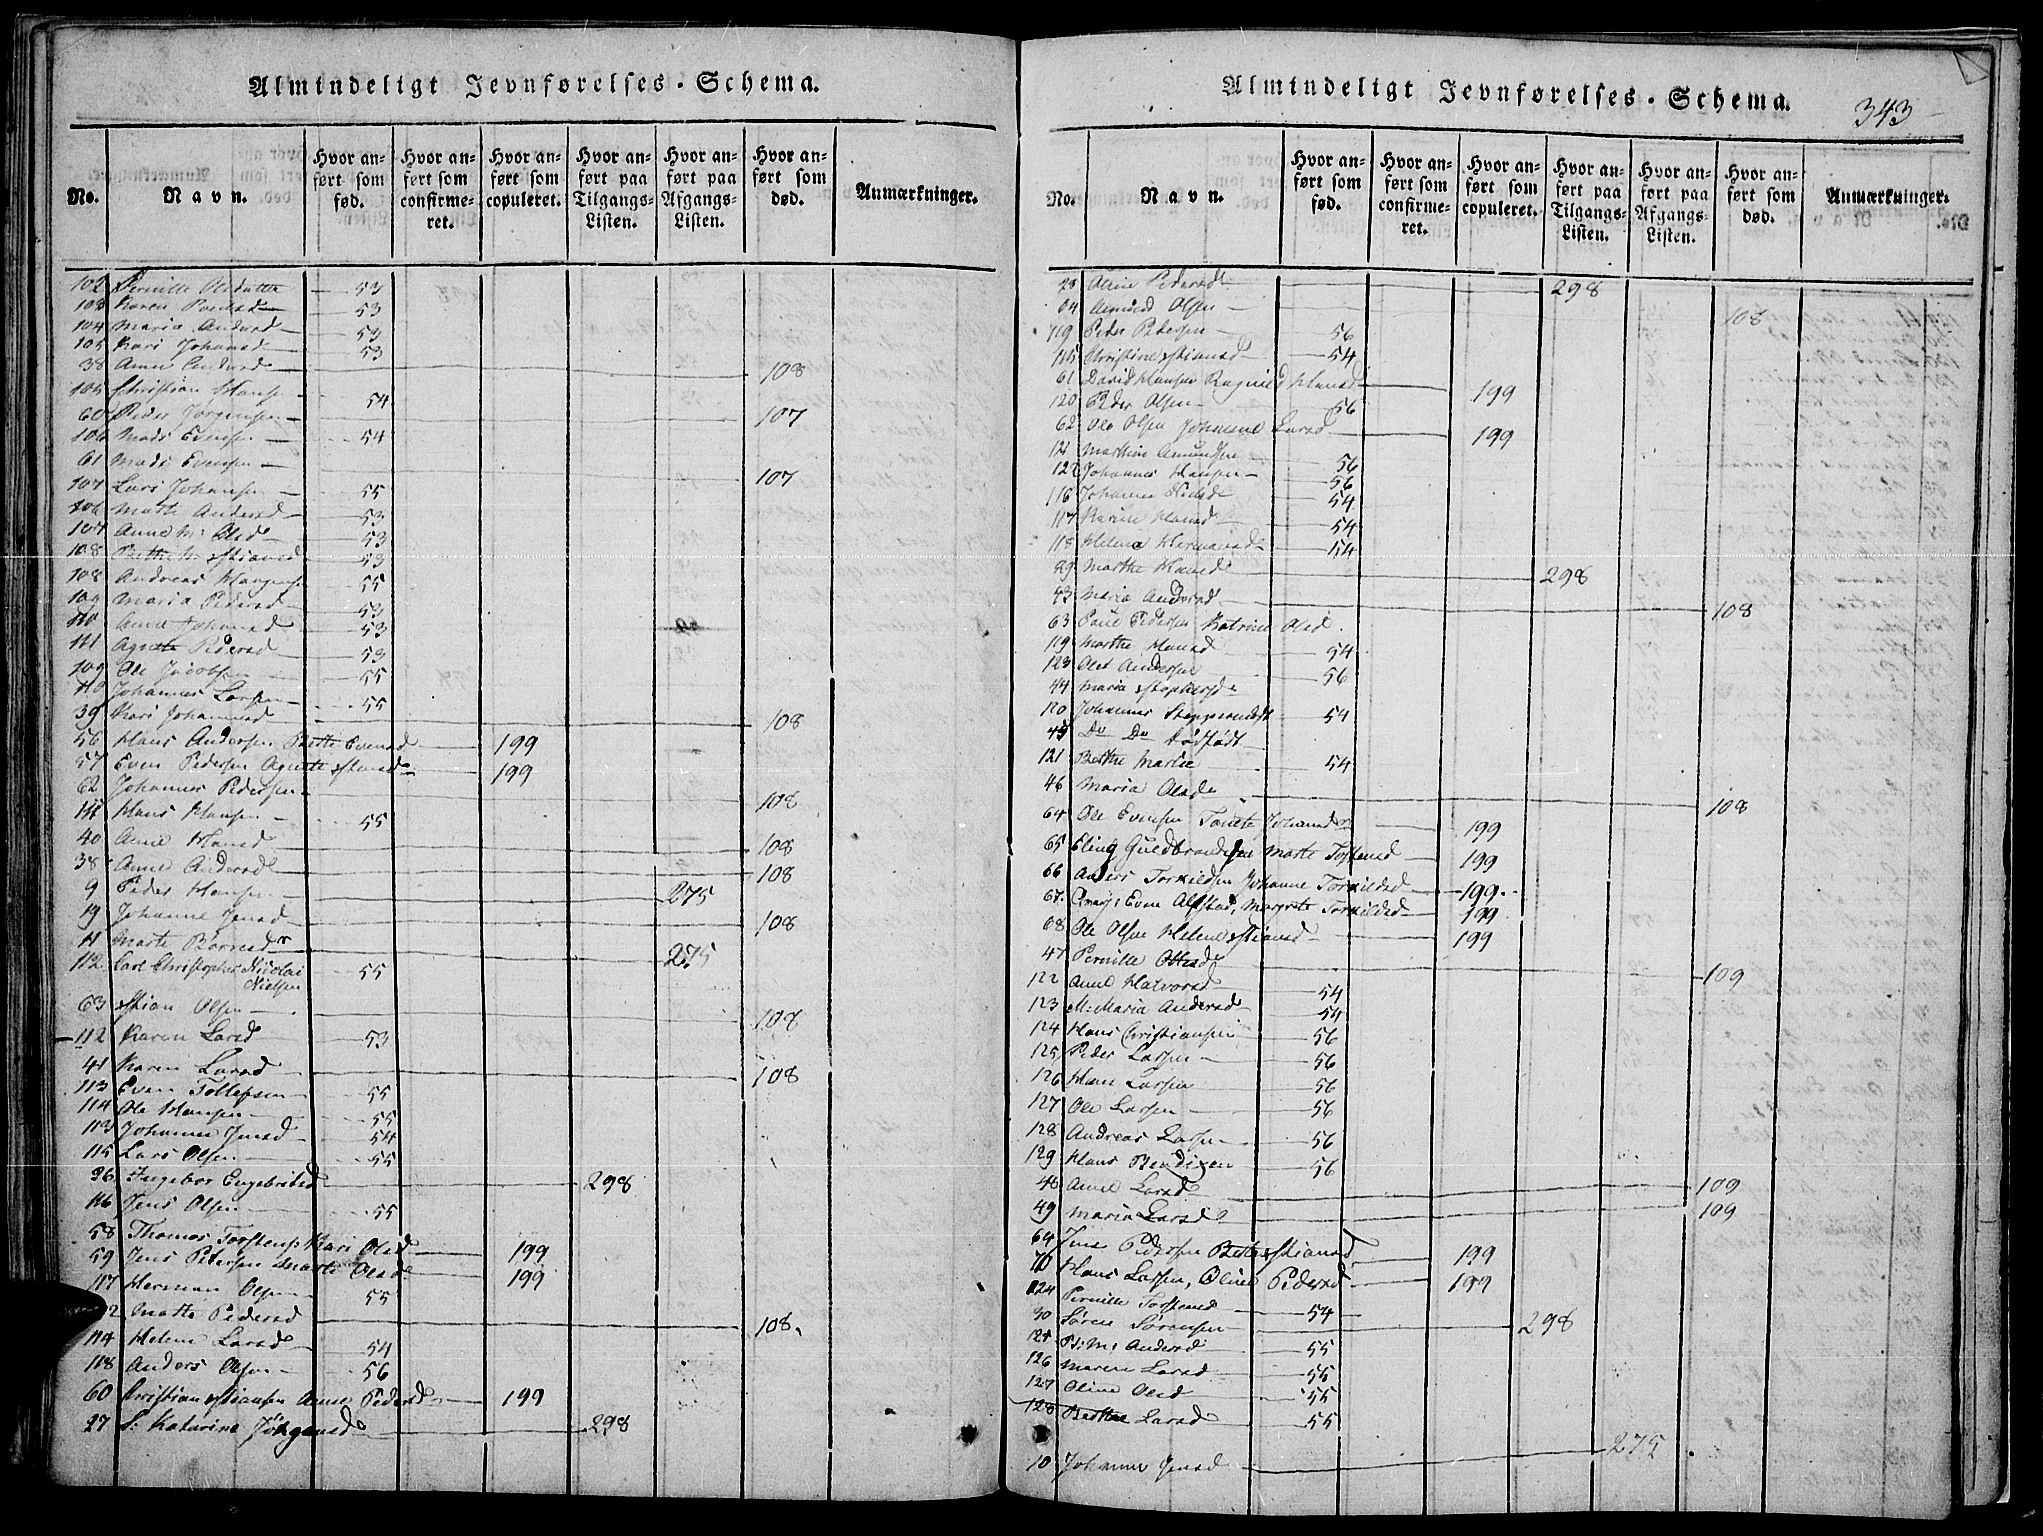 Almindeligt Jevnførelses-Schema.
No. Navn. Hvor anført som fød. Hvor anført som confirmeret. Hvor anført som copuleret. Hvor anført paa Tilgangs-Listen. Hvor anført paa Afgangs-Listen. Hvor anført som død. Anmærkninger.
102 Pernille Olsdatter 53
103 Karen 53
104 Maria Andersd 53
105 Kari Johansd 53
38 Anne 108
105 Christian Hansen 54
60 Peder Jørgensen 107
106 Mads Evensen 54
61 Mads Evensen 107
107 Lars Johansen 55
106 Marte Andersd 53
107 Anne M: Olsd 53
108 Berthe M: 53
108 Andreas 55
109 Maria Pedersd 53
110 Anne Johansd 53
111 Agnete Pedersd 53
109 Ole Jacobsen 55
110 Johannes Larsen 55
39 Kari Johannesd 108
56 Hans Andersen Berte Evensd 199
57 Even Pedersen Agnete 199
62 Johannes Pedersen 108
111 Hans Hansen 55
40 Anne Hansd 108
38 Anne Andersd 108
9 Peder Hansen 275
19 Johanne Jensd 108
11 Marte 275
112 Carl Christopher Nicolai Nielsen 55
63 Olsen 108
112 Karen Larsd 53
41 Karen Larsd 108
113 Even Tollefsen 55
114 Ole Hansen 55
113 Johanne Jensd 54
115 Lars Olsen 55
26 Ingebor Engebritsd 298
116 Jens Olsen 55
58 Thomas Torstens: Kari Olsd 199
59 Jens Petersen Marte Olsd 199
117 Herman Olsen 55
Marte Pedersd 108.
114 Helene Larsd 54
118 Anders Olsen 56
60 Christian Anne Pedersd 199
27 S: Katarina Jörgensd 298
Almindeligt Jevnførelses-Schema.
343
No. Navn. Hvor anført som fød. Hvor anført som confirmeret. Hvor anført som copuleret. Hvor anført paa Tilgangs-Listen. Hvor anført paa Afgangs-Listen. Hvor anført som død. Anmærkninger.
28 Oline Pedersd 298
64 Amund Olsen 108
119 Peder Pedersen 56
115 Christine 54
61 David Hansen Ragnild Hansd 199
120 Peder Olsen 56
62 Ole Olsen Johanne Larsd 199
121 Martin Amundsen 56
122 Johannes Hansen 56
116 Johanne Nielsd 54
117 Karine Hansd 54
118 Helene Hermansd 54
29 Marthe Hansd 298
43 Maria Andersd 108
63 Paul Pedersen Katrine Olsd.
119 Marthe Hansd 54
123 Ole Andersen 56
44 Maria
120 Johannes 54
45 Do Do dødfødt
121 Berthe Marie 54
46 Maria Olsd 108
64 Ole Evensen Johansdr 199
65 Eling Guldbrandsen Marte Tostensd 199
66 Anders Torkildsen Johanne Torkildsd 199.
67. Even Alfstad, Margrete Torkildsd 199
68 Ole Olsen Helene 199
47 Pernille Ottersd 109
122 Anne Halvorsd 54
123 M: Maria Andersd 54
124 Hans Christiansen 56
125 Peder Larsen 56
126 Hans Larsen 56
127 Ole Larsen 56
128 Andreas Larsen 56
129 Hans Bendixen 56
48 Anne Larsd 109
49 Maria Larsd 109
69 Jens Pedersen Berte 199
70 Hans Larsen, Oline Pedersd 199
124 Pernille Torstensd 54
30 Søren Sørensen 298
125 B: M: Andersd 55
126 Maren Larsd 55
127 Oline Olsd 55
128 Berthe Larsd 55
10 Johanne Jensd 275